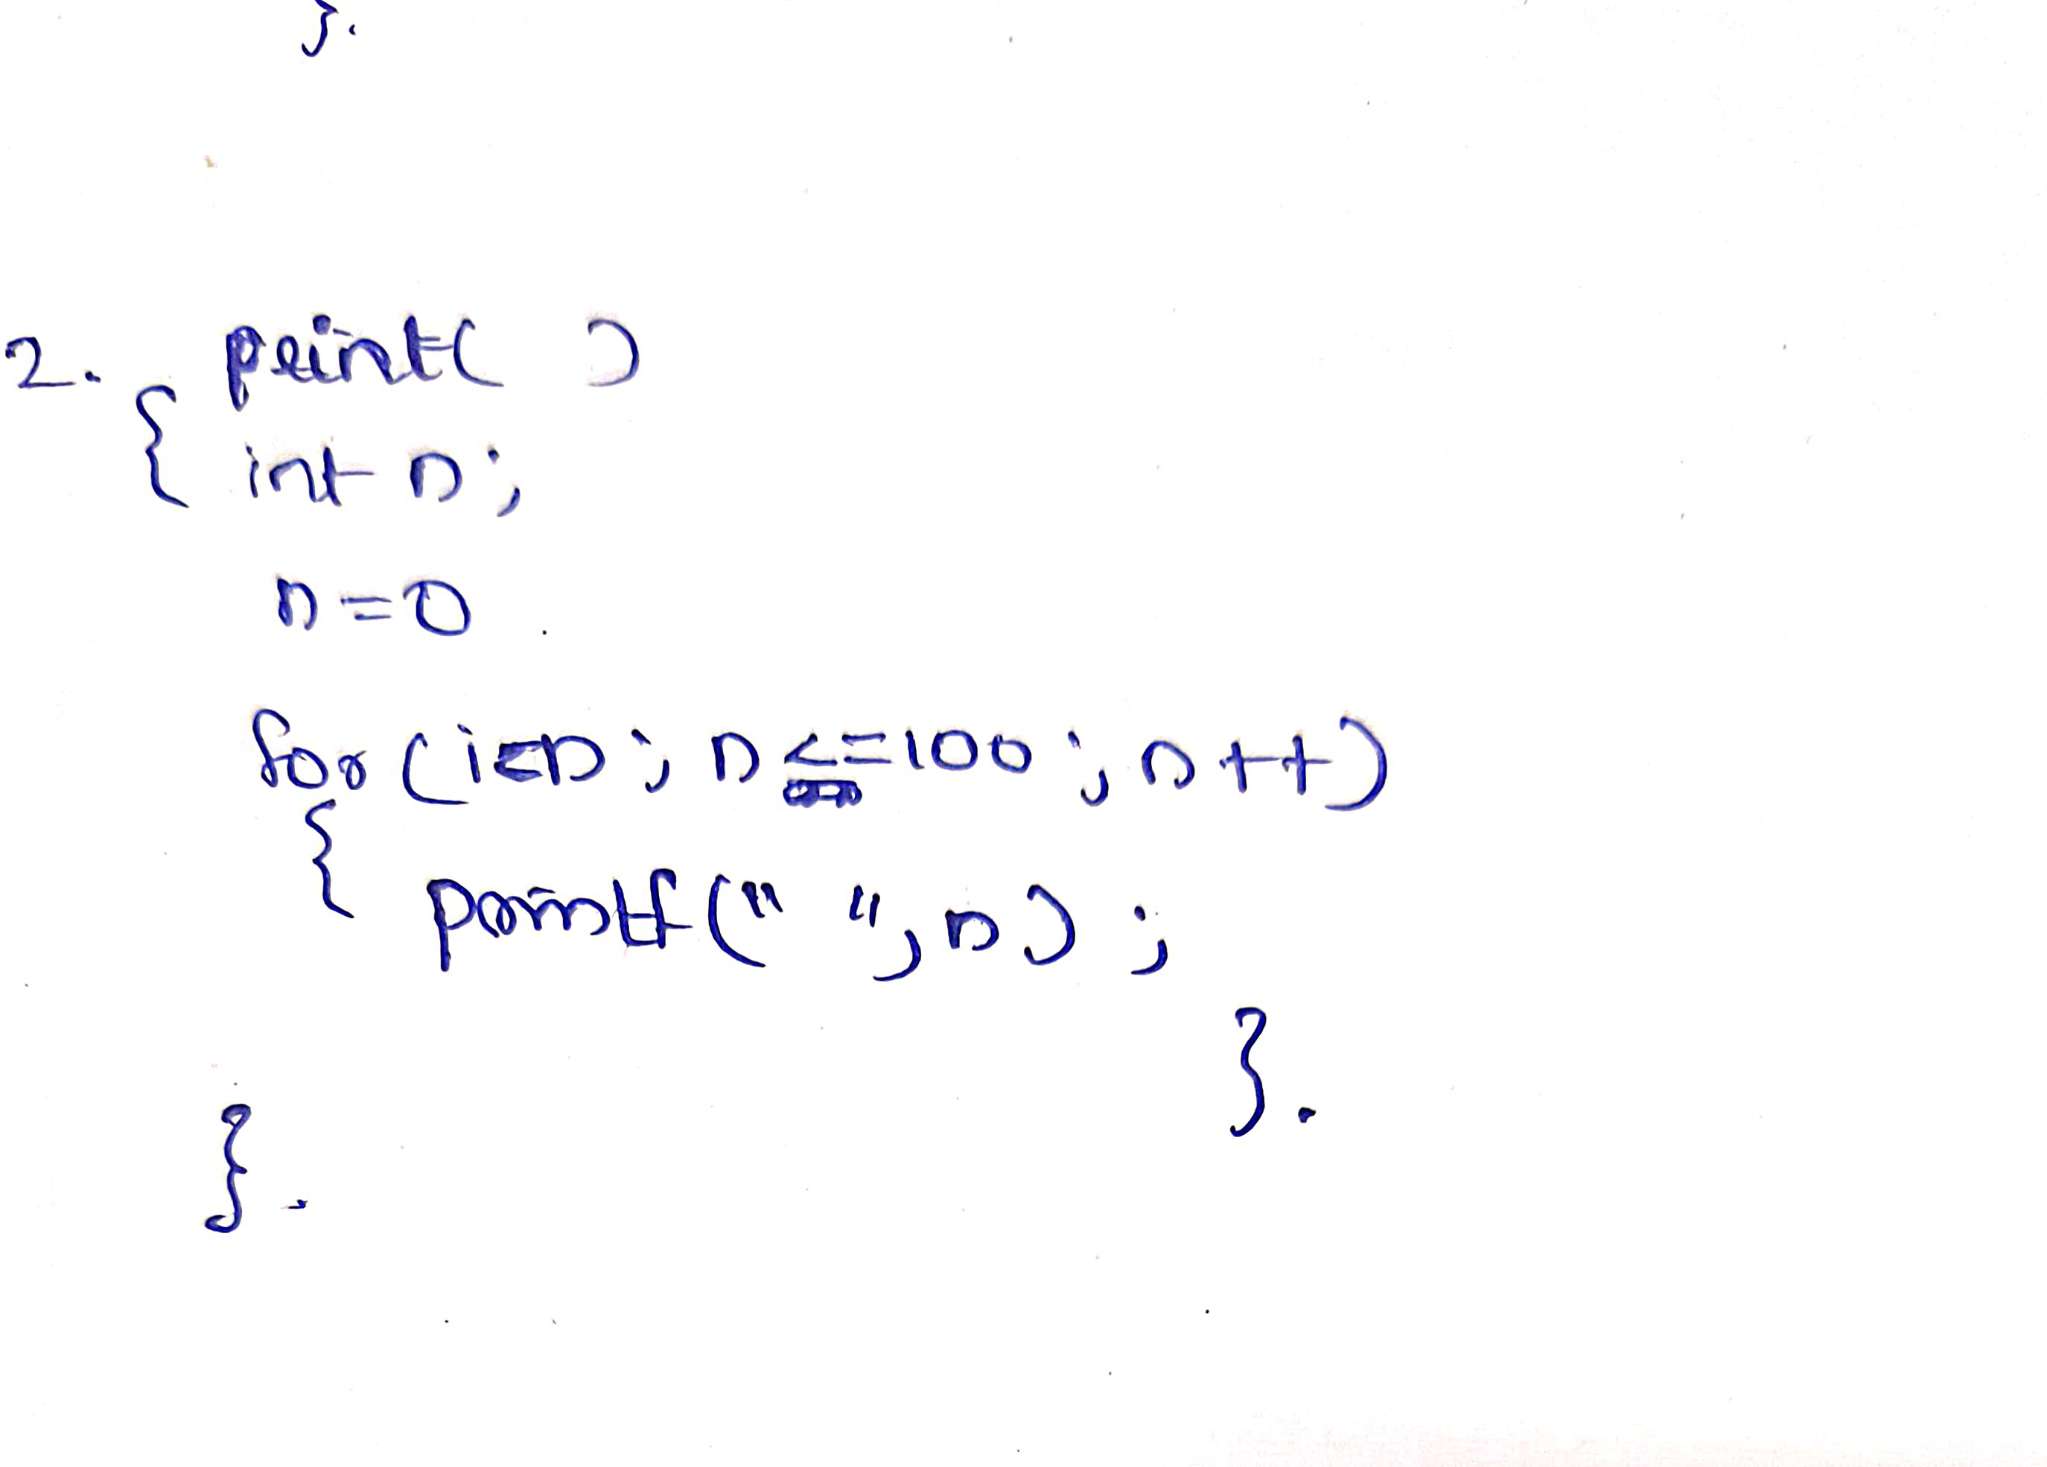 }.
2. print( )
{ int n;
n=0
for (i=n; n<=100; n++)
{ printf(" ", n) ;
}.
}.